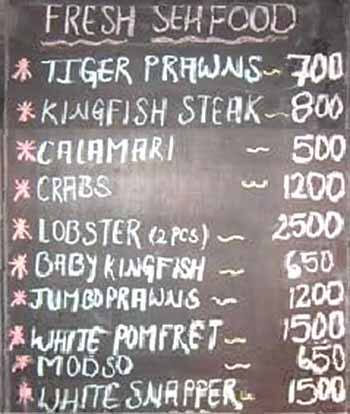 FRESH SEAFOOD
* TIGER PRAWNS ~ 700
* KINGFISH STEAK ~ 800
* CALAMARI ~ 500
* CRABS ~ 1200
* LOBSTER (2 PCS) ~ 2500
* BABY KINGFISH ~ 650
* JUMBO PRAWNS ~ 1200
* WHITE POMFRET ~ 1500
* MODSO ~ 650
* WHITE SNAPPER ~ 1500